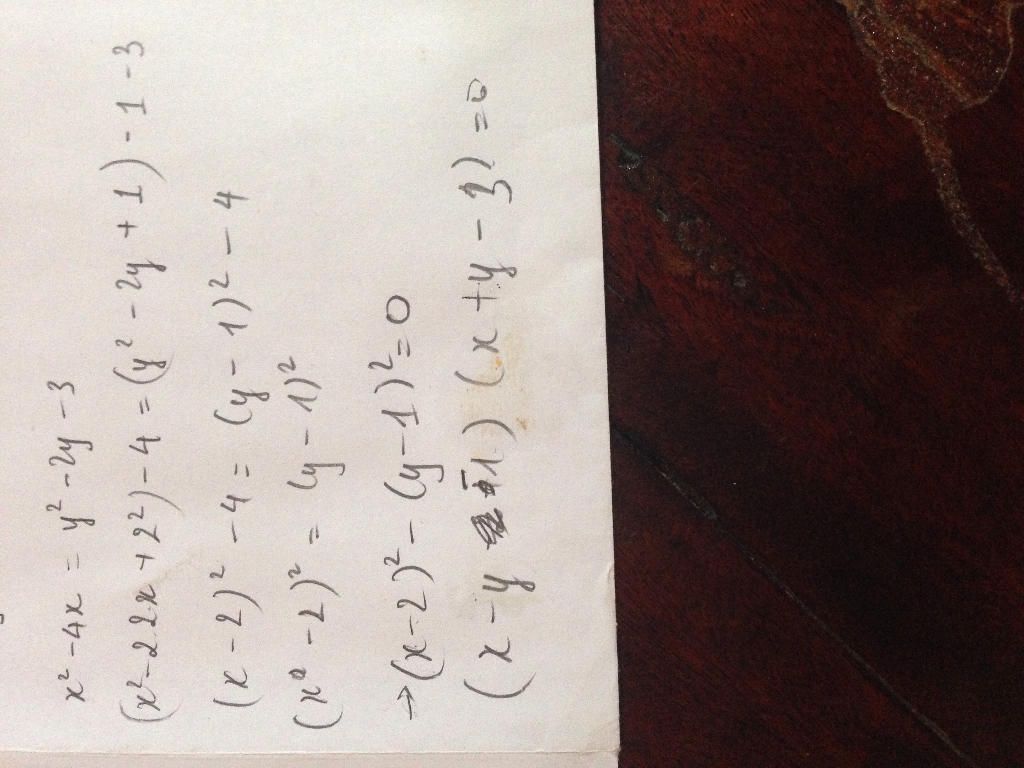 x² - 4x = y² - 2y - 3
(x² - 2 2x + 2²) - 4 = (y² - 2y + 1) - 1 - 3
(x - 2)² - 4 = (y - 1)² - 4
(x - 2)² = (y - 1)²
→ (x - 2)² - (y - 1)² = 0
(x - y - 1) (x + y - 3) = 0